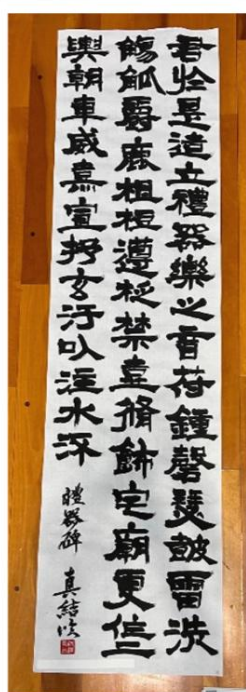 君於是造立禮器樂之音苻鍾磬瑟皷雷洗
觴觚爵鹿柤梪籩柉禁壺脩飾宅廟更作二
輿朝車威熹宣抒玄汙以注水流
禮器碑 真結